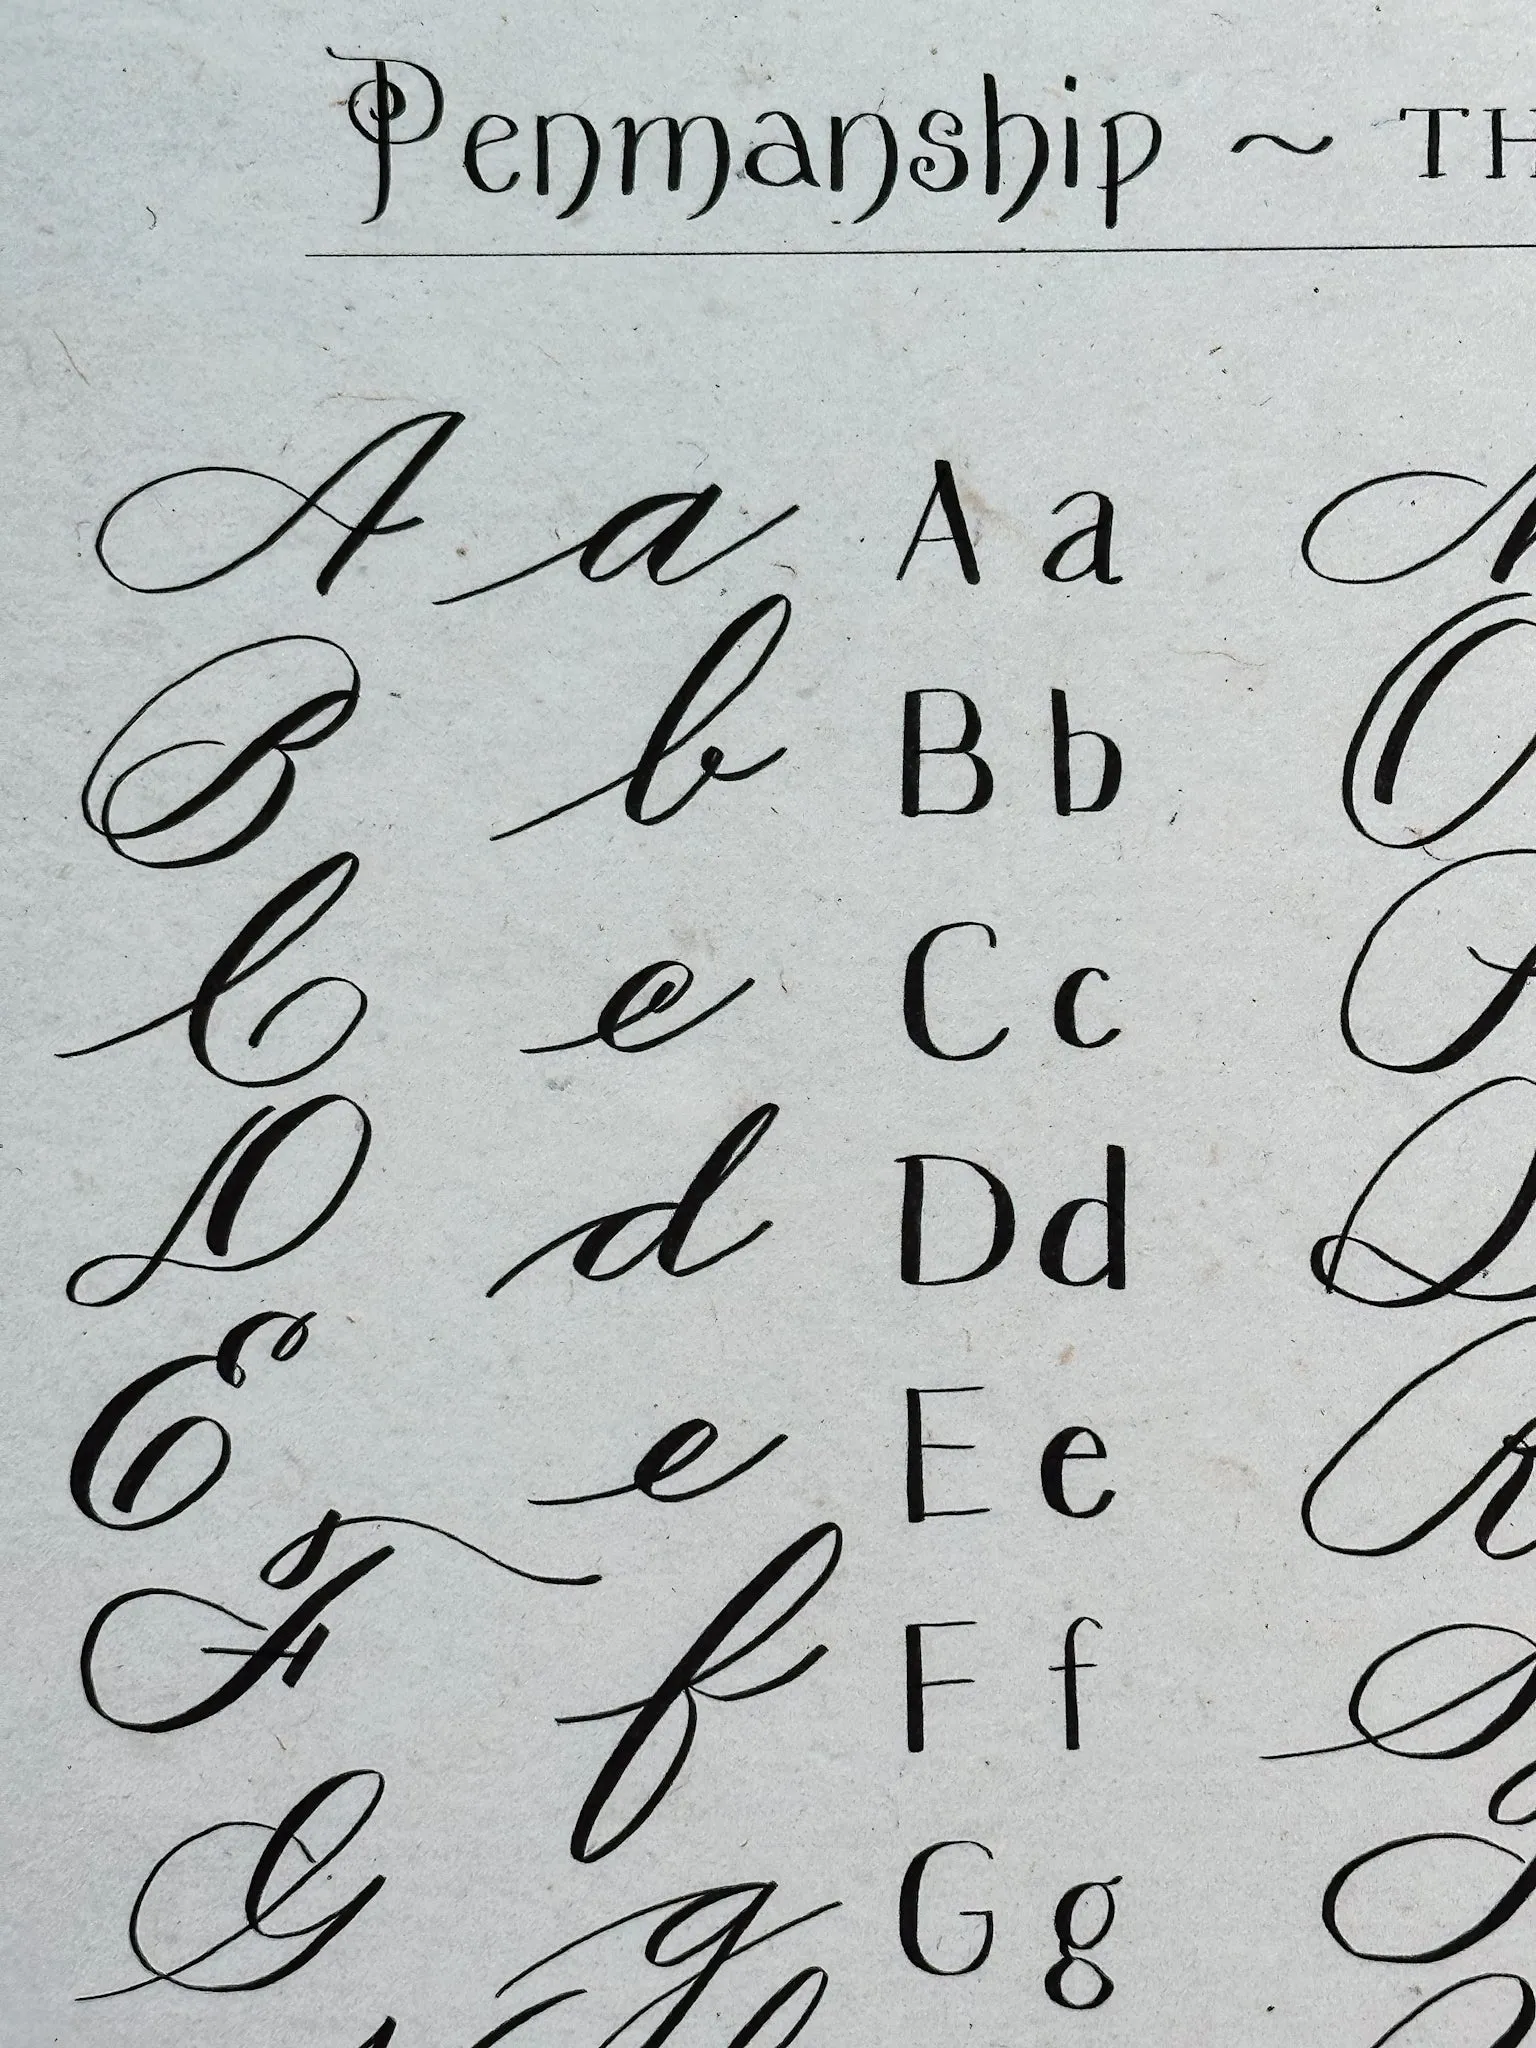 Penmanship ~ TH
A a A a N
B b B b O
C c C c P
D d D d Q
E e E e R
F f F f S
G g G g T